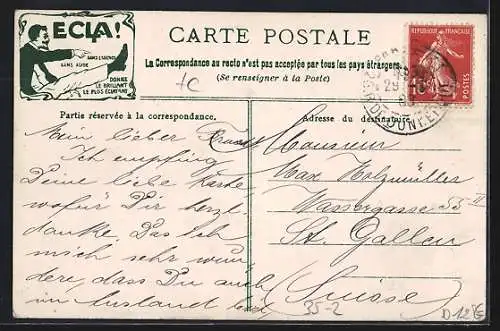 ECLA!
SANS ODEUR
DONNE
LE BRILLANT
LE PLUS ÉCLATANT
CARTE POSTALE
La Correspondance au recto n'est pas acceptée par tous les pays étrangers
(Se renseigner à la Poste)
tC
RÉPUBLIQUE FRANÇAISE
10
POSTES
Partie réservée à la correspondance.
Mein lieber
Ich empfing
Deine liebe Karte
wofür Dir herzl.
danke. Das Ich
mich sehr wun
dere, dass Du auch
im Ausland bist
Adresse du destinataire
Monsieur
Max Holzmüller
Wassergasse 55 II
St. Gallen
Suisse
35-2
D 12€